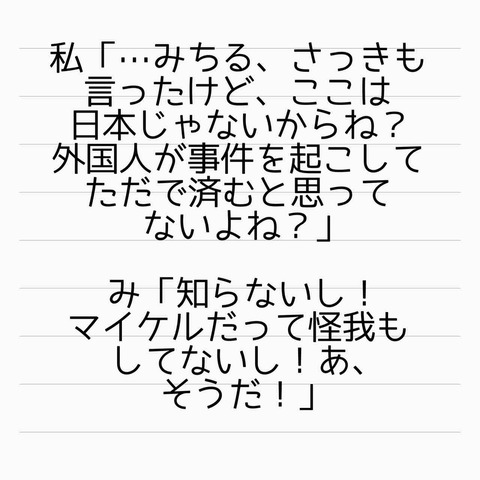 私「…みちる、さっきも
言ったけど、ここは
日本じゃないからね？
外国人が事件を起こして
ただで済むと思って
ないよね？」
み「知らないし！
マイケルだって怪我も
してないし！あ、
そうだ！」